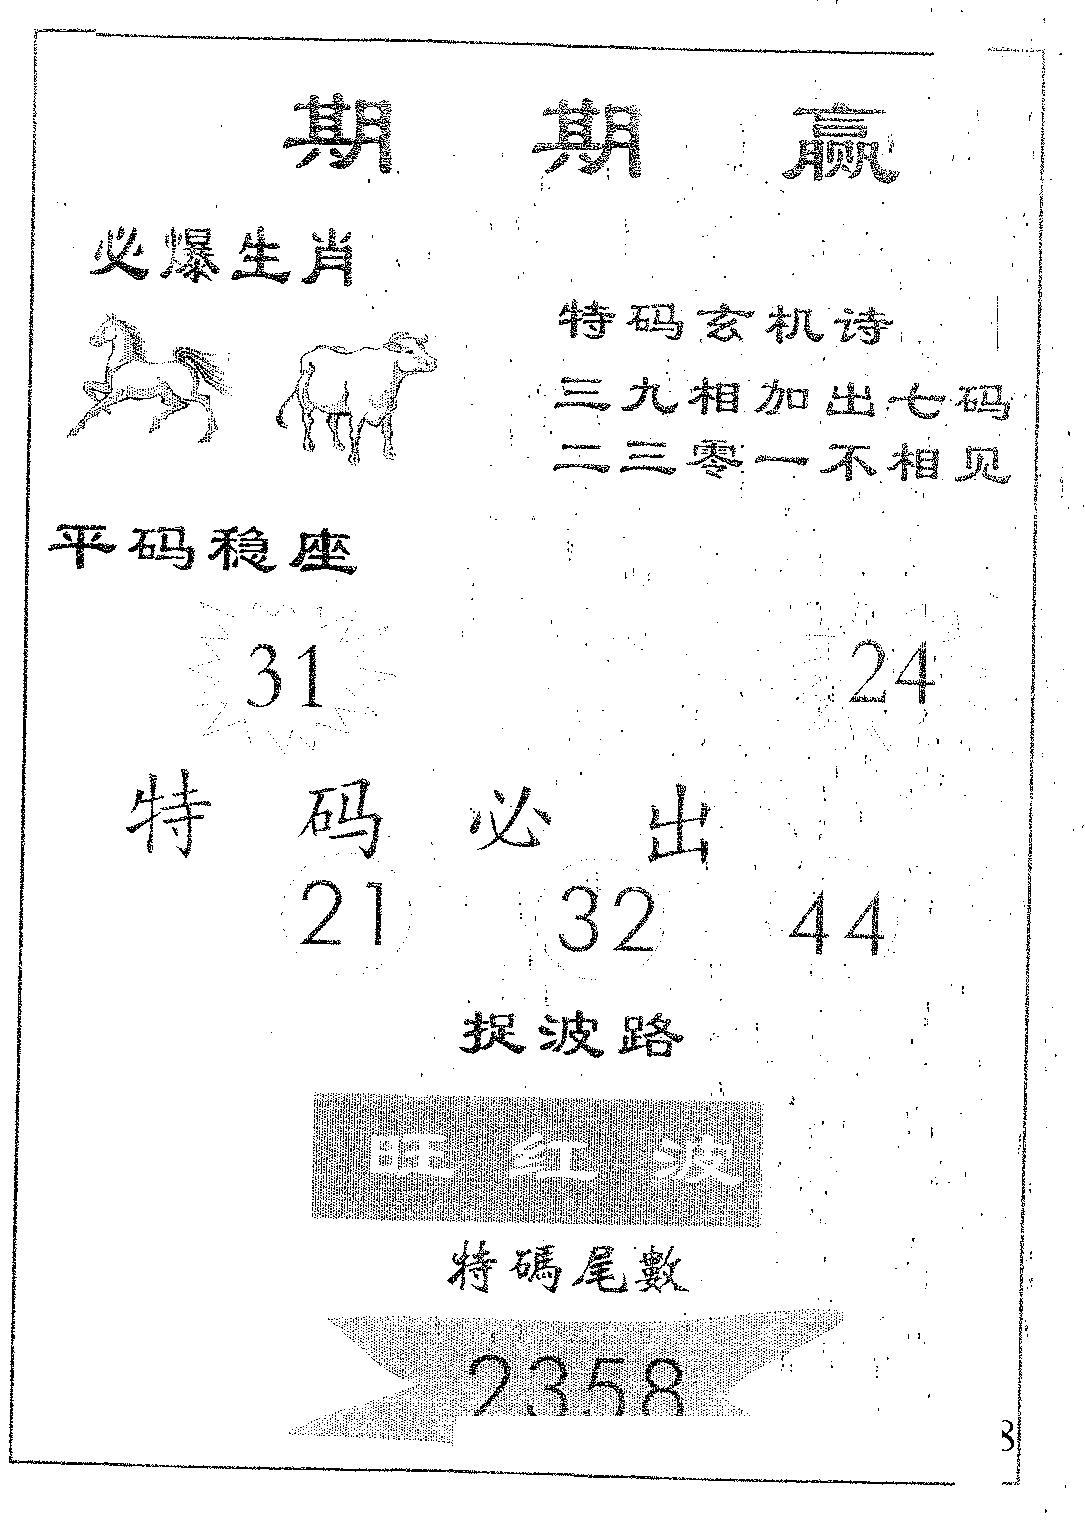 期期赢
必爆生肖
特码玄机诗
三九相加出七码
二三零一不相见
平码稳座
31
24
特码必出
21 32 44
捉波路
旺红波
特碼尾數
2358
8